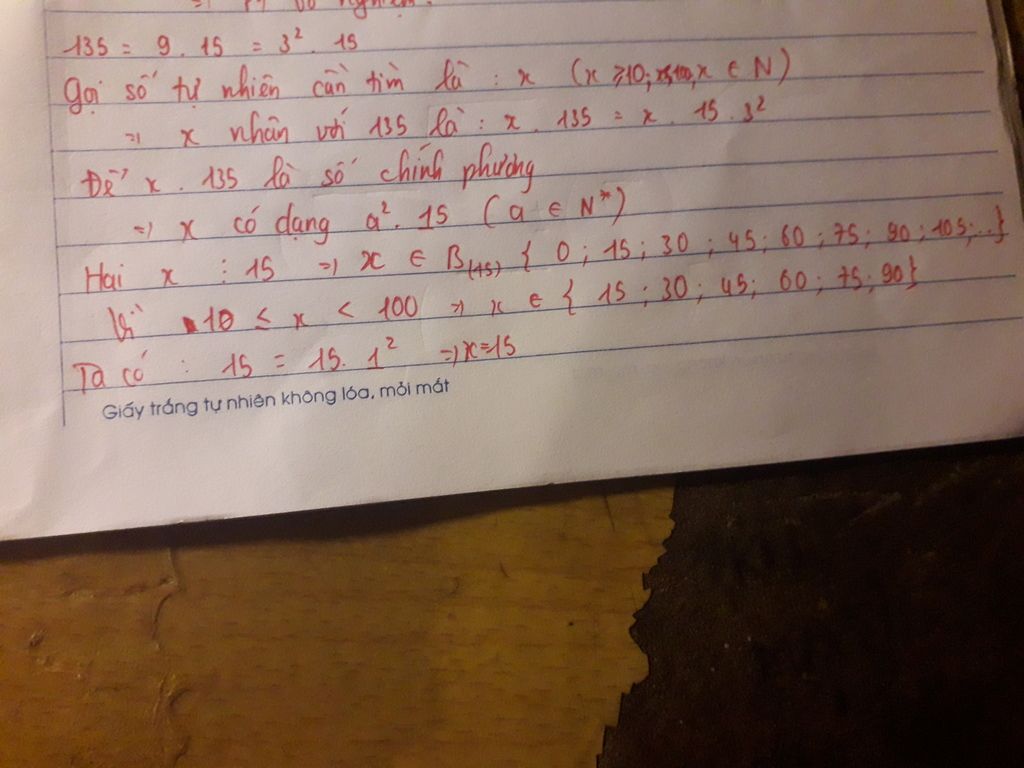 => PT vô nghiệm.
135 = 9 . 15 = 3² . 15
Gọi số tự nhiên cần tìm là : x (x ≥ 10; x ∈ N)
=> x nhân với 135 là : x . 135 = x . 15 . 3²
Để x . 135 là số chính phương
=> x có dạng a² . 15 (a ∈ N*)
Hai x ⋮ 15 => x ∈ B(15) { 0 ; 15 ; 30 ; 45 ; 60 ; 75 ; 90 ; 105 ; ..}
Vì 10 ≤ x < 100 => x ∈ { 15 ; 30 ; 45 ; 60 ; 75 ; 90}
Ta có : 15 = 15 . 1² => x = 15
Giấy trắng tự nhiên không lóa, mỏi mắt